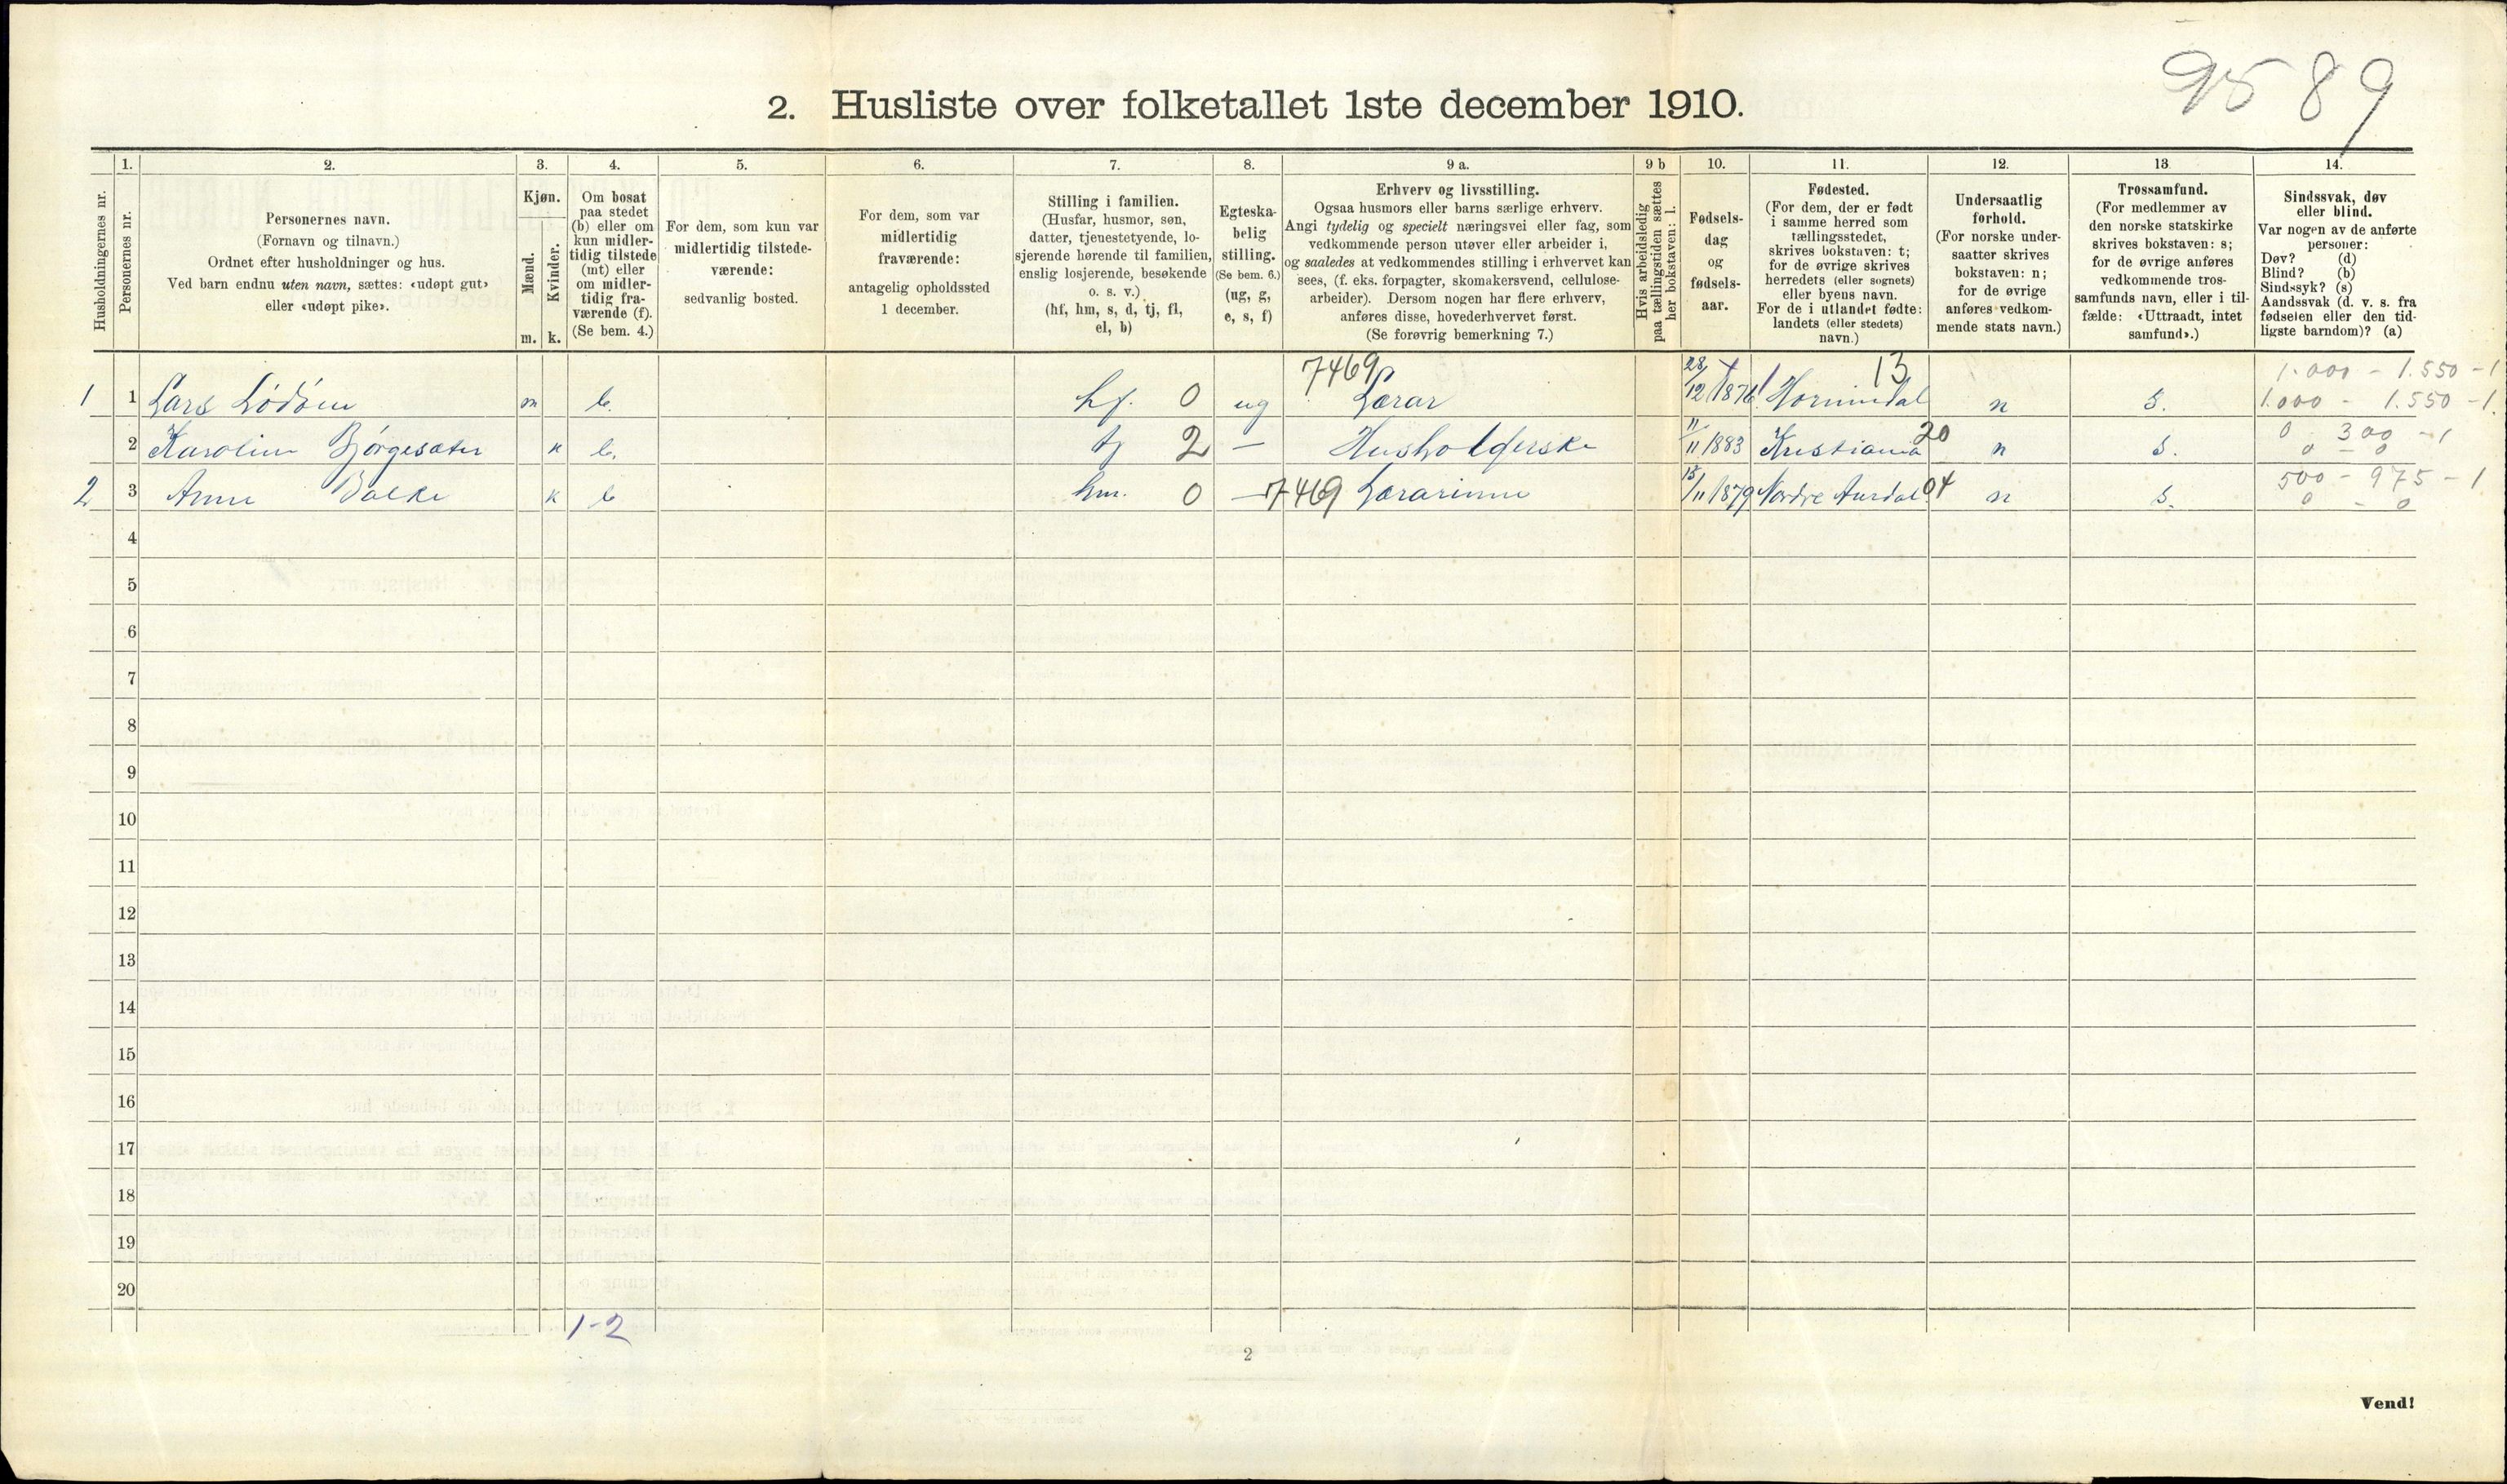 9589
2. Husliste over folketallet 1ste december 1910.
Husholdningernes nr.
1.
Personernes nr.
2.
Personernes navn.
(Fornavn og tilnavn.)
Ordnet efter husholdninger og hus.
Ved barn endnu uten navn, sættes: «udøpt gut»
eller «udøpt pike».
3.
Kjøn.
Mænd.
m.
Kvinder.
k.
4.
Om bosat
paa stedet
(b) eller om
kun midler-
tidig tilstede
(mt) eller
om midler-
tidig fra-
værende (f).
(Se bem. 4.)
5.
For dem, som kun var
midlertidig tilstede-
værende:
sedvanlig bosted.
6.
For dem, som var
midlertidig
fraværende:
antagelig opholdssted
1 december.
7.
Stilling i familien.
(Husfar, husmor, søn,
datter, tjenestetyende, lo-
sjerende hørende til familien,
enslig losjerende, besøkende
o. s. v.)
(hf, hm, s, d, tj, fl,
el, b)
8.
Egteska-
belig
stilling.
(Se bem. 6.)
(ug, g,
e, s, f)
9 a.
Erhverv og livsstilling.
Ogsaa husmors eller barns særlige erhverv.
Angi tydelig og specielt næringsvei eller fag, som
vedkommende person utøver eller arbeider i,
og saaledes at vedkommendes stilling i erhvervet kan
sees, (f. eks. forpagter, skomakersvend, cellulose-
arbeider). Dersom nogen har flere erhverv,
anføres disse, hovederhvervet først.
(Se forøvrig bemerkning 7.)
9 b
Hvis arbeidsledig
paa tællingstiden sættes
her bokstaven: l.
10.
Fødsels-
dag
og
fødsels-
aar.
11.
Fødested.
(For dem, der er født
i samme herred som
tællingsstedet,
skrives bokstaven: t;
for de øvrige skrives
herredets (eller sognets)
eller byens navn.
For de i utlandet fødte:
landets (eller stedets)
navn.)
12.
Undersaatlig
forhold.
(For norske under-
saatter skrives
bokstaven: n;
for de øvrige
anføres vedkom-
mende stats navn.)
13
Trossamfund.
(For medlemmer av
den norske statskirke
skrives bokstaven: s;
for de øvrige anføres
vedkommende tros-
samfunds navn, eller i til-
fælde: «Uttraadt, intet
samfund».)
14.
Sindssvak, døv
eller blind.
Var nogen av de anførte
personer:
Døv? (d)
Blind? (b)
Sindssyk? (s)
Aandssvak (d. v. s. fra
fødselen eller den tid-
ligste barndom)? (a)
7469 13 1.000 - 1.550 - 1
1 1 Lars Lödöen m b. hf. 0 ug Lærar 28/12 1876 Hornindal n s. 1.000 - 1.550 - 1.
2 Karolin Bjørgesæter k b. tj 2 — Husholderske 11/11 1883 Kristiania 20 n s. 0 300 - 1
0 - 0
2 3 Anne Bakke k b hm. 0 — 7469 Lærarinne 15/11 1879 Nordre Aurdal 04 n s. 500 - 975 - 1
0 - 0
4
5
6
7
8
9
10
11
12
13
14
15
16
17
18
19
20
1-2
2
Vend!